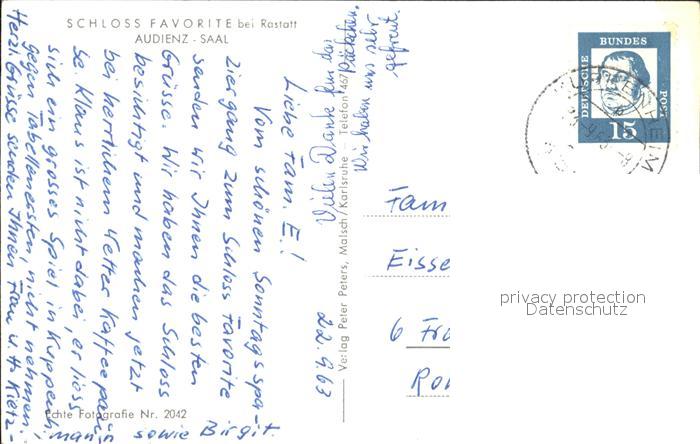 SCHLOSS FAVORITE bei Rastatt
AUDIENZ-SAAL
22.9.63
Liebe Fam. E.!
Vom schönen Sonntagsspa-
ziergang zum Schloss Favorite
senden wir Ihnen die besten
Grüsse. Wir haben das Schloss
besichtigt und machen jetzt
bei herrlichem Wetter Kaffeepause
Klaus ist nicht dabei, er liess
sich ein grosses Spiel in Kuppenheim
gegen Tabellenersten, nicht nehmen.
Herzl. Grüsse senden Ihnen, Frau u. H. Kietz.
sowie Birgit.
Vielen Dank für das
Päckchen.
Wir haben uns sehr
gefreut.
Echte Fotografie Nr. 2042
Verlag Peter Peters, Malsch/Karlsruhe - Telefon 467
DEUTSCHE
BUNDES
POST
15
Fam
Eisse
6 Fra
privacy protection
Datenschutz